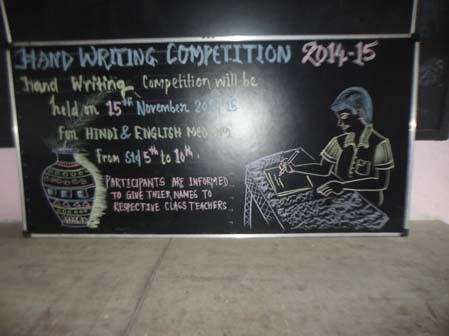 HAND WRITING COMPETITION 2014-15
Hand Writing Competition will be
held on 15TH November
FOR HINDI & ENGLISH
From Std 5th to 10th.
PARTICIPANTS ARE INFORMED
TO GIVE THIER NAMES TO
RESPECTIVE CLASS TEACHERS